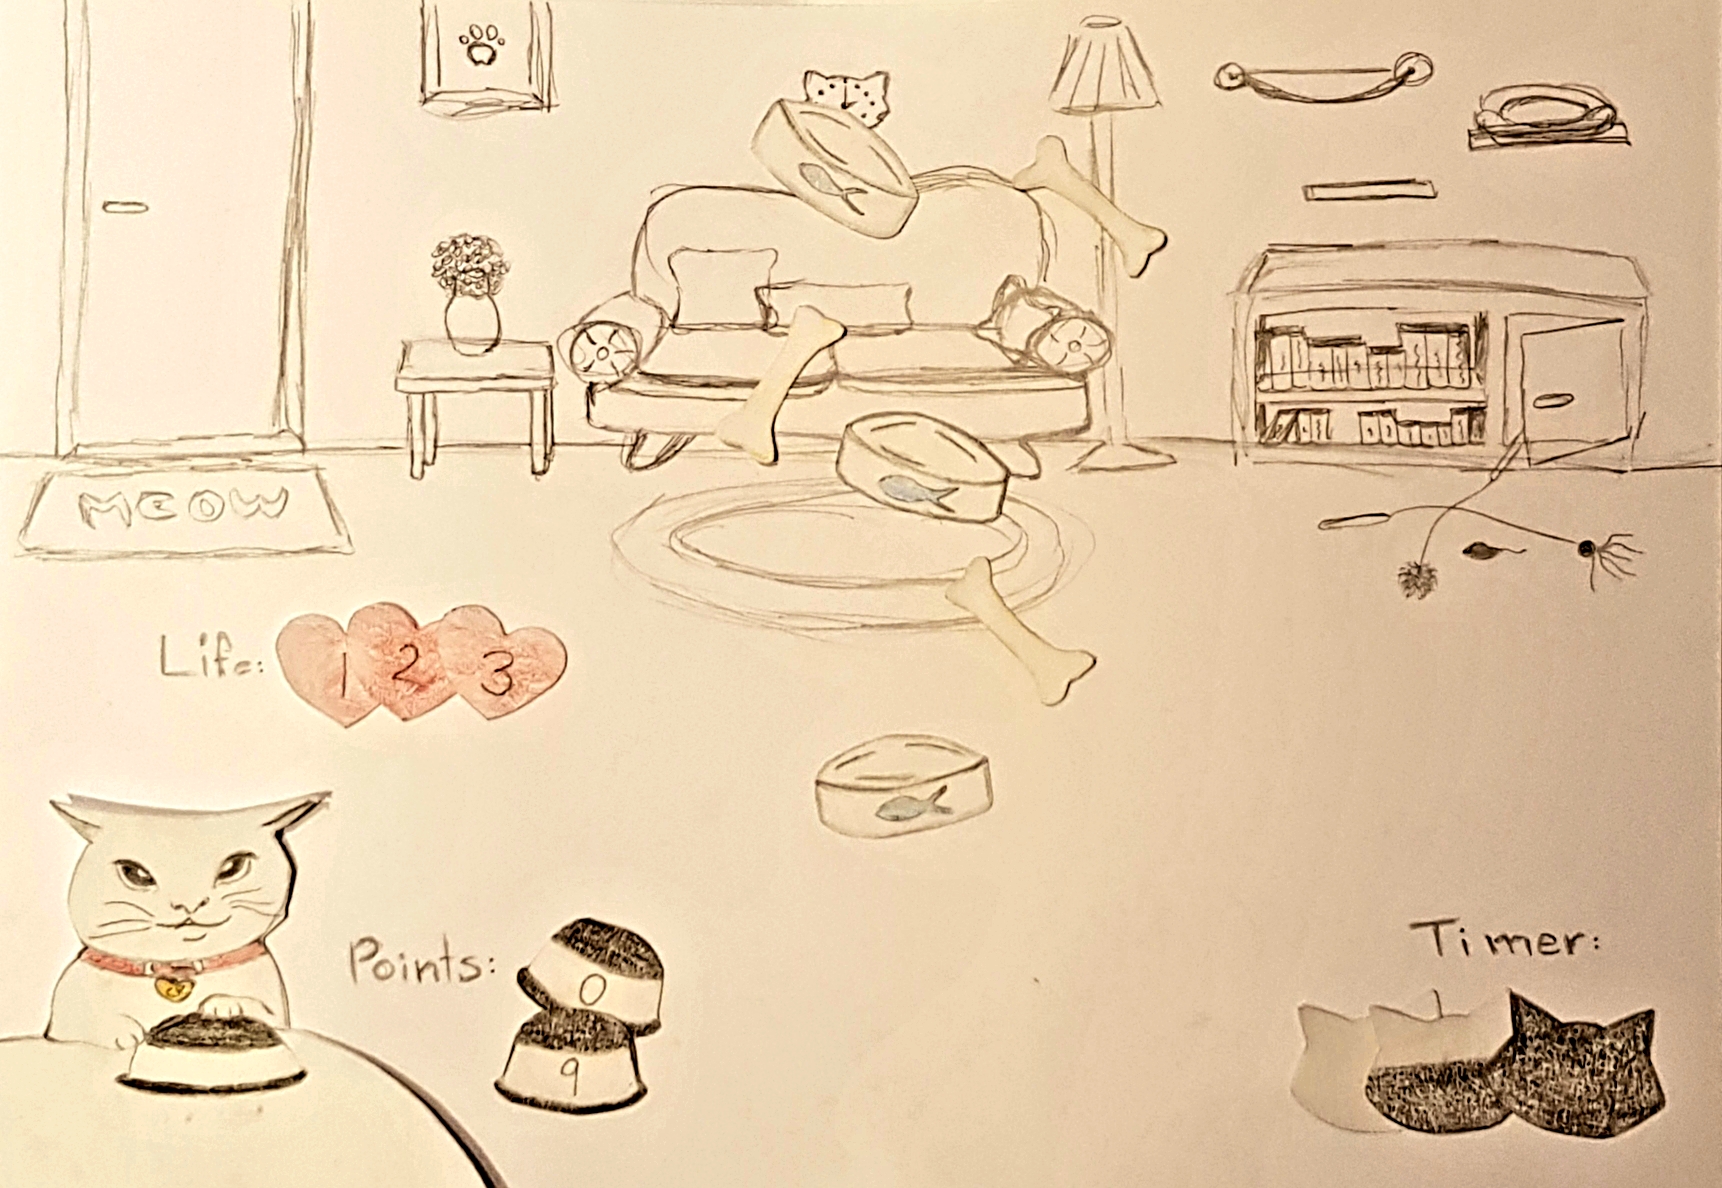 MEOW
Life: 1 2 3
Points: 0
9
Timer: